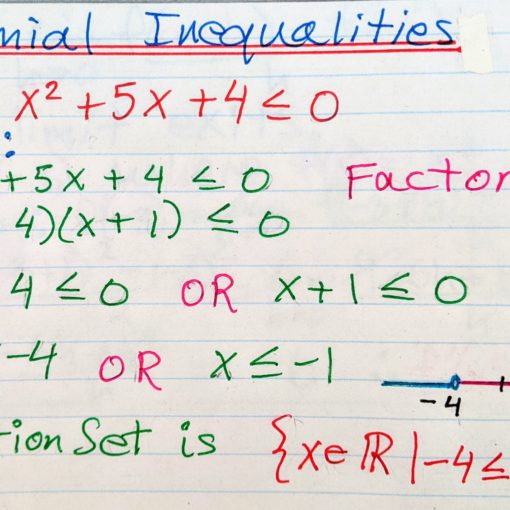 nial Inequalities
x² + 5x + 4 ≤ 0
:
+ 5x + 4 ≤ 0 Factor
4)(x + 1) ≤ 0
4 ≤ 0 OR x + 1 ≤ 0
-4 OR x ≤ -1
-4
tion Set is {x∈ℝ | -4 ≤